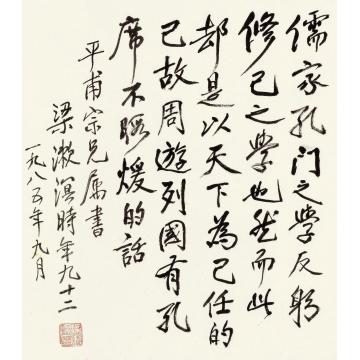 儒家孔门之学反躬
修己之学也然而此
却是以天下為己任的
己故周遊列國有孔
席不暇煖的話
平甫宗兄属書
梁漱溟時年九十二
一九八五年九月